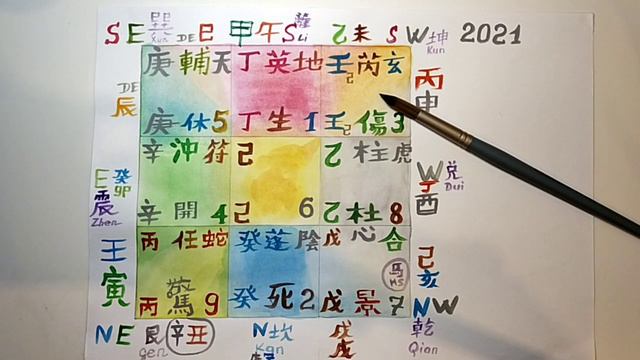 SE 巽 Xun DE 巳 甲午 S 離 Li 乙未 SW 坤 Kun 2021
庚 輔 天 丁 英 地 壬 己 芮 玄
DE 辰
丙申
庚 休 5 丁 生 1 壬 己 傷 3
辛 沖 符 己 乙 柱 虎
E 癸卯
震 Zhen
W 兌 Dui
丁酉
辛 開 4 己 6 乙 杜 8
丙 任 蛇 癸 蓬 陰 戊 心 合
壬寅
己亥
馬 HS
丙 驚 9 癸 死 2 戊 景 7
NW
NE 艮 gen 辛丑 N 坎 Kan 乾 Qian